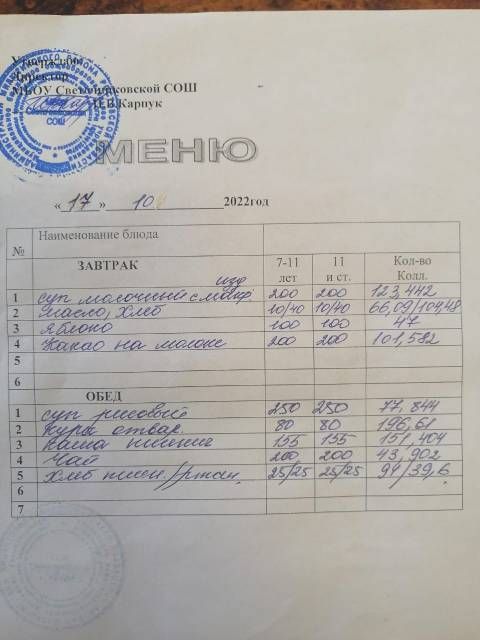 Утверждаю
Директор
МБОУ Светочниковской СОШ
Н.В.Карпук
МЕНЮ
« 17 » 10 2022год
№ Наименование блюда
ЗАВТРАК 7-11 лет 11 и ст. Кол-во Колл.
1 суп молочный с мак. изд 200 200 123,442
2 масло, хлеб 10/40 10/40 66,09/104,48
3 яблоко 100 100 47
4 Какао на молоке 200 200 101,582
5
6
ОБЕД
1 суп рисовый 250 250 77,844
2 куры отвар. 80 80 196,61
3 каша пшенная 155 155 151,404
4 Чай 200 200 43,902
5 Хлеб пшен./ржан. 25/25 25/25 94/39,6
6
7